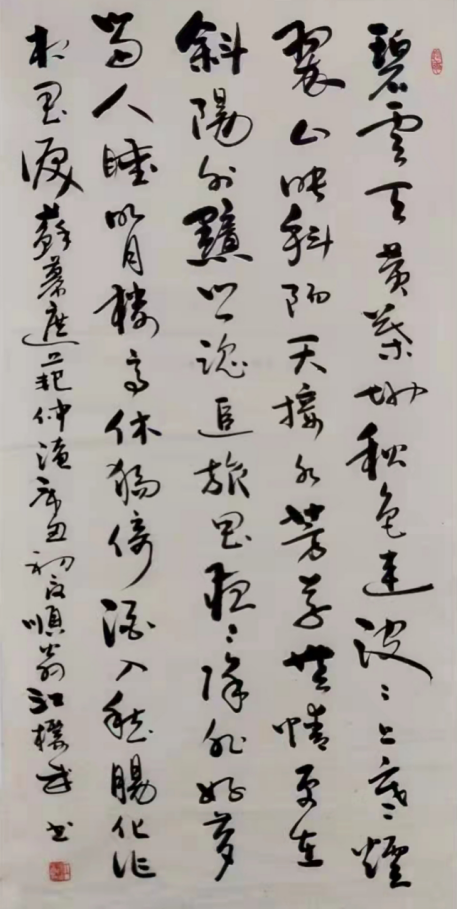 碧雲天黃葉地秋色連波〻上寒煙
翠山映斜陽天接水芳草無情更在
斜陽外黯鄉魂追旅思夜〻除非好夢
留人睡明月樓高休獨倚酒入愁腸化作
相思淚蘇幕遮范仲淹辛丑初夏順書